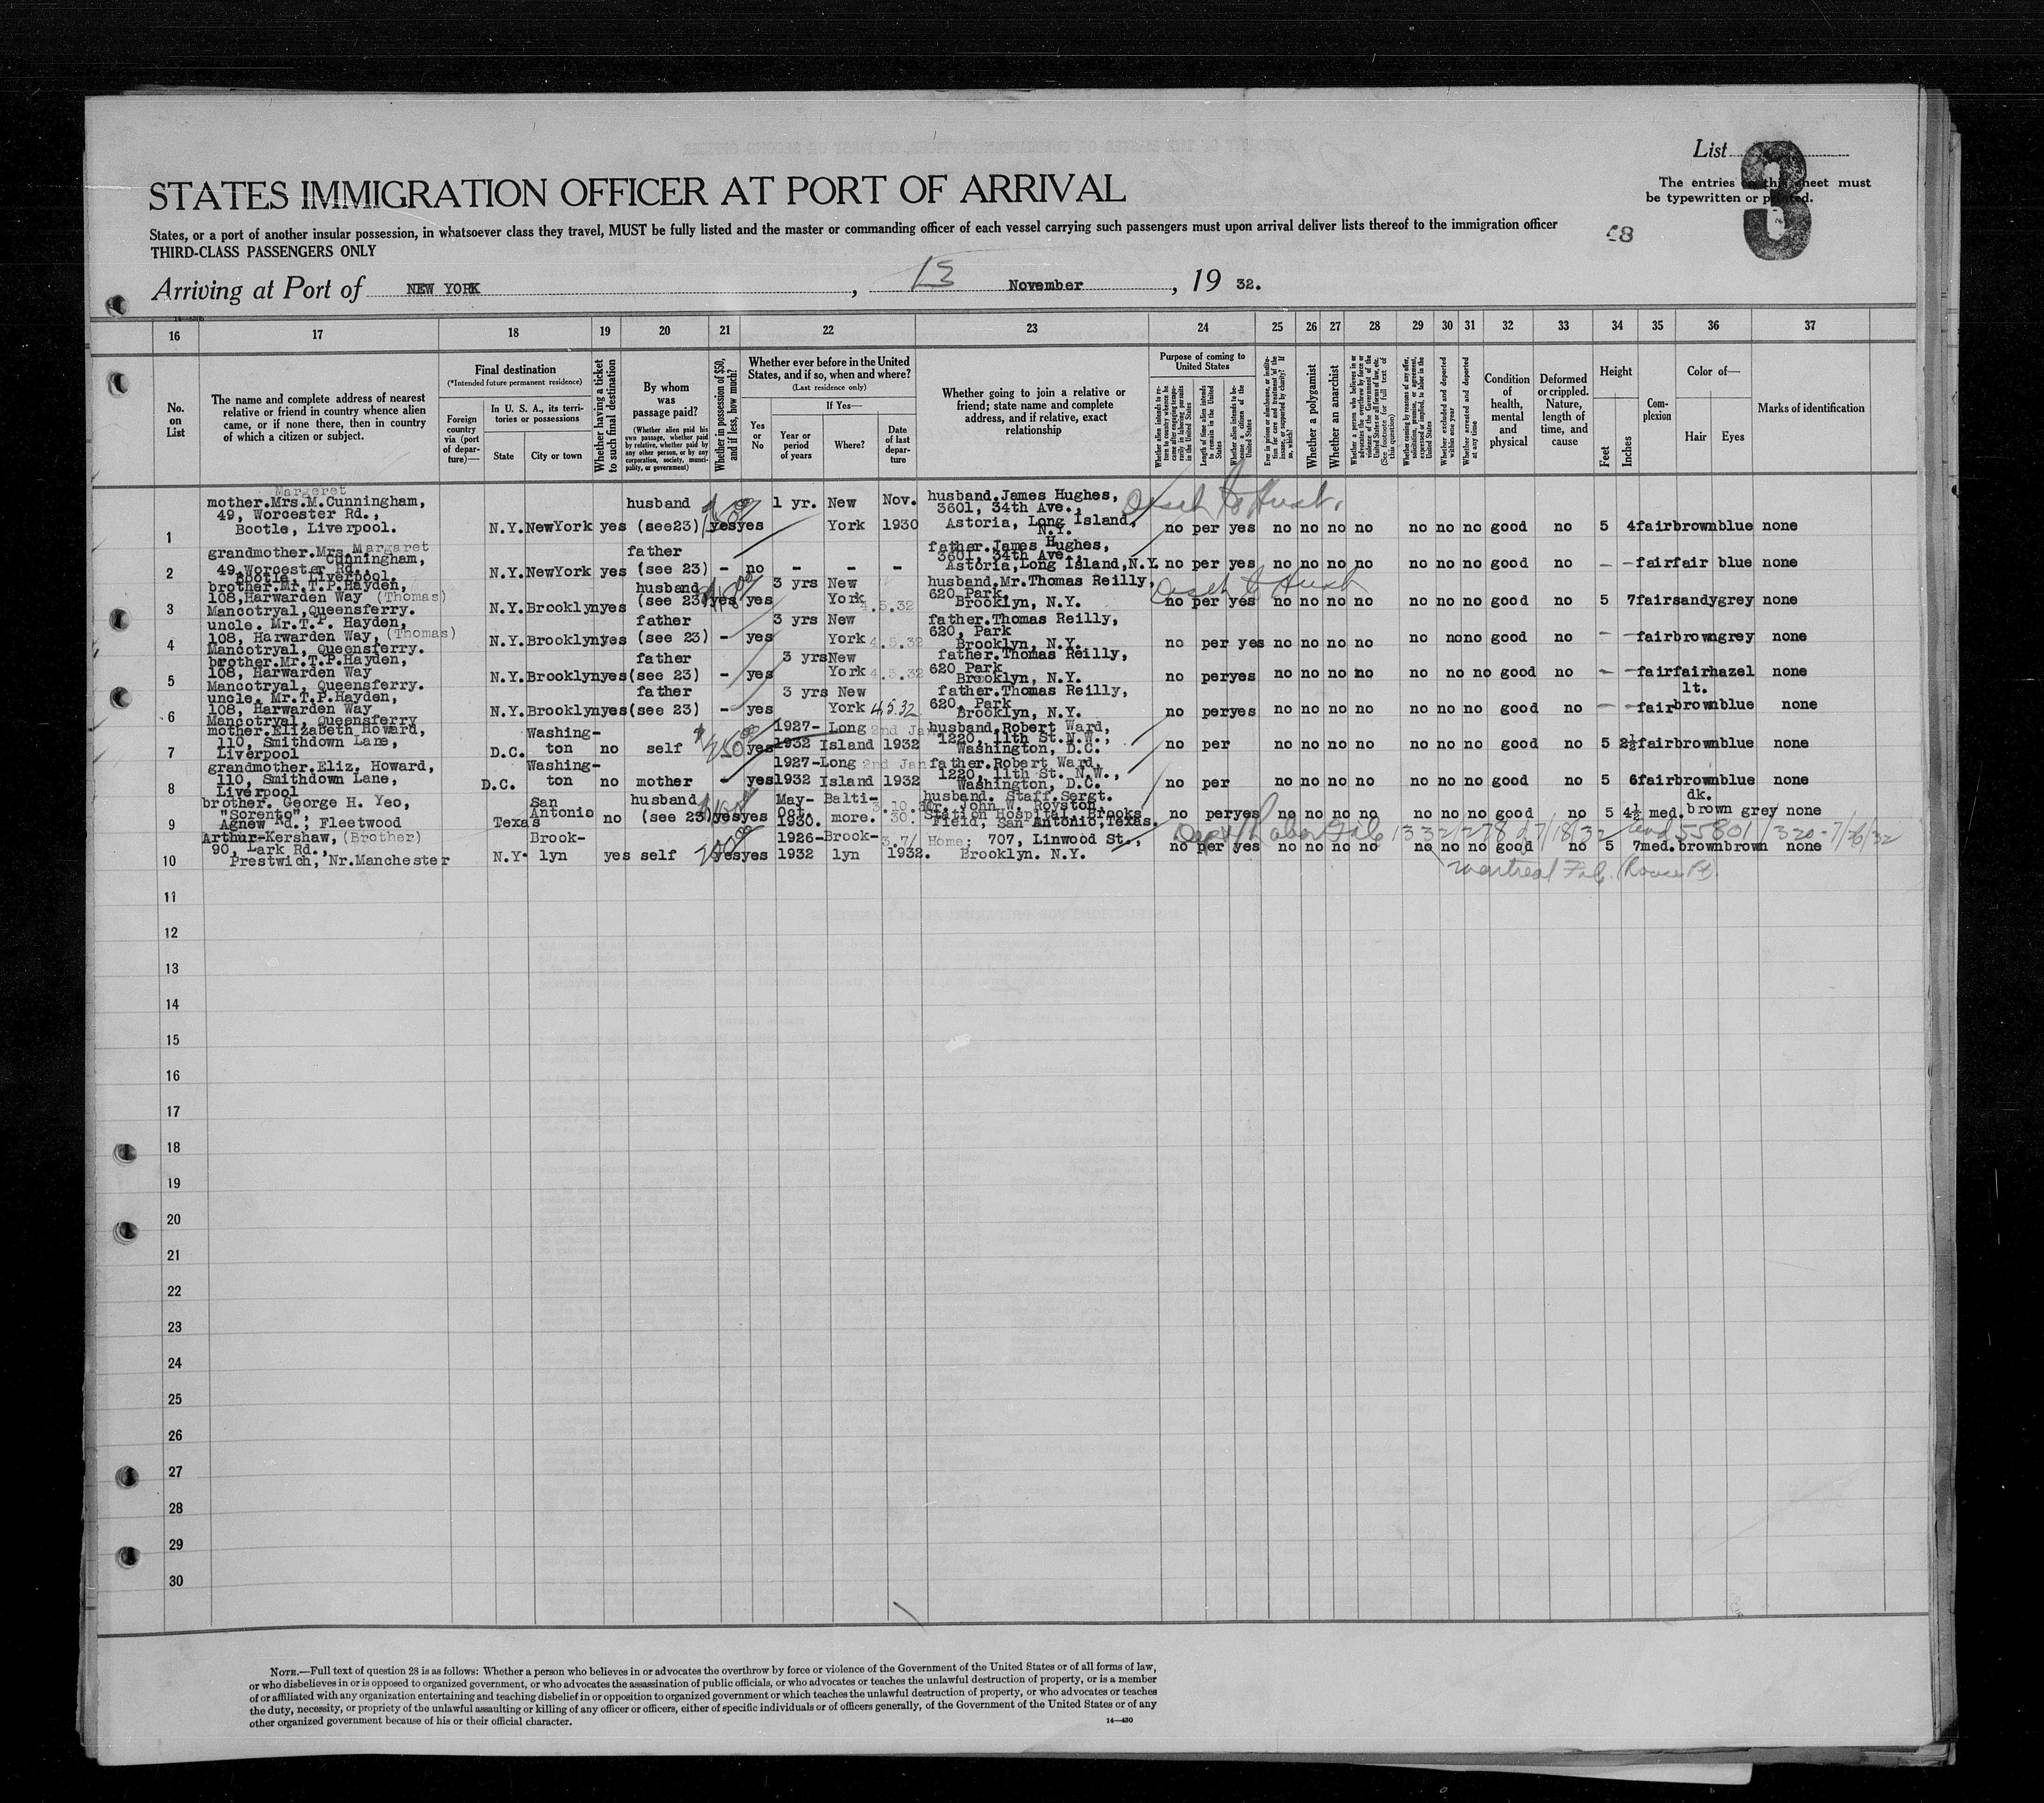 List 3
STATES IMMIGRATION OFFICER AT PORT OF ARRIVAL
The entries on this sheet must
be typewritten or printed.
States, or a port of another insular possession, in whatsoever class they travel, MUST be fully listed and the master or commanding officer of each vessel carrying such passengers must upon arrival deliver lists thereof to the immigration officer
THIRD-CLASS PASSENGERS ONLY
Arriving at Port of NEW YORK, November, 19 32.
16 17 18 19 20 21 22 23 24 25 26 27 28 29 30 31 32 33 34 35 36 37
No. on List
The name and complete address of nearest relative or friend in country whence alien came, or if none there, then in country of which a citizen or subject.
Final destination
(*Intended future permanent residence)
Foreign country via (port of departure)—
In U. S. A., its territories or possessions
State
City or town
Whether having a ticket to such final destination
By whom was passage paid?
(Whether alien paid his own passage, whether paid by relative, whether paid by any other person, or by any corporation, society, municipality, or government)
Whether in possession of $50, and if less, how much?
Whether ever before in the United States, and if so, when and where?
(Last residence only)
Yes or No
If Yes—
Year or period of years
Where?
Date of last departure
Whether going to join a relative or friend; state name and complete address, and if relative, exact relationship
Purpose of coming to United States
Whether alien intends to return to country whence he came after engaging temporarily in laboring pursuits in the United States
Length of time alien intends to remain in the United States
Whether alien intends to become a citizen of the United States
Ever in prison or almshouse, or institution for care and treatment of the insane, or supported by charity? If so, which?
Whether a polygamist
Whether an anarchist
Whether a person who believes in or advocates the overthrow by force or violence of the Government of the United States or all forms of law, etc. (See footnote for full text of this question)
Whether coming by reasons of any offer, solicitation, promise, or agreement, expressed or implied, to labor in the United States
Whether excluded and deported within one year
Whether arrested and deported at any time
Condition of health, mental and physical
Deformed or crippled. Nature, length of time, and cause
Height
Feet
Inches
Complexion
Color of—
Hair
Eyes
Marks of identification
Margaret
mother.Mrs.M.Cunningham, husband 1 yr. New Nov. husband.James Hughes,
49, Worcester Rd., 3601, 34th Ave.,
1 Bootle, Liverpool. N.Y. NewYork yes (see23) yes yes York 1930 Astoria, Long Island, N.Y. no per yes no no no no no no no good no 5 4 fair brown blue none
grandmother.Mrs. Margaret father father.James Hughes,
Cunningham, 3601, 34th Ave.,
49,Worcester Rd.,
2 Bootle, Liverpool. N.Y. NewYork yes (see 23) - no - - - Astoria,Long Island,N.Y. no per yes no no no no no no no good no - - fair fair blue none
brother.Mr.T.P.Hayden, husband 3 yrs New husband.Mr.Thomas Reilly,
108,Harwarden Way (Thomas) 620, Park
3 Mancotryal,Queensferry. N.Y. Brooklyn yes (see 23) yes yes York 4.5.32 Brooklyn, N.Y. no per yes no no no no no no no good no 5 7 fair sandy grey none
uncle. Mr.T.P. Hayden, father 3 yrs New father.Thomas Reilly,
108, Harwarden Way, (Thomas) 620, Park
4 Mancotryal, Queensferry. N.Y. Brooklyn yes (see 23) - yes York 4.5.32 Brooklyn, N.Y. no per yes no no no no no no no good no - - fair brown grey none
brother.Mr.T.P.Hayden, father 3 yrs New father.Thomas Reilly,
108, Harwarden Way 620 Park
5 Mancotryal, Queensferry. N.Y. Brooklyn yes (see 23) - yes York 4.5.32 Brooklyn, N.Y. no per yes no no no no no no no good no - - fair fair hazel none
uncle. Mr.T.P.Hayden, father 3 yrs New father.Thomas Reilly, lt.
108, Harwarden Way 620, Park
6 Mancotryal, Queensferry N.Y. Brooklyn yes (see 23) - yes York 4.5.32 Brooklyn, N.Y. no per yes no no no no no no no good no - - fair brown blue none
mother.Elizabeth Howard, Washing- 1927- Long 2nd Jan husband.Robert Ward,
110, Smithdown Lane, 1220, 11th St.N.W.,
7 Liverpool D.C. ton no self yes 1932 Island 1932 Washington, D.C. no per no no no no no no no good no 5 2½ fair brown blue none
grandmother.Eliz. Howard, Washing- 1927- Long 2nd Jan father.Robert Ward,
110, Smithdown Lane, 1220, 11th St. N.W.,
8 Liverpool D.C. ton no mother - yes 1932 Island 1932 Washington, D.C. no per no no no no no no no good no 5 6 fair brown blue none
brother. George H. Yeo, San Antonio husband May- Balti- husband. Staff.Sergt. dk.
"Sorento" Oct. Mr. John W. Royston,
9 Agnew Rd.; Fleetwood Texas no (see 23) yes yes 1930. more. 3.10.30. Station Hospital, Brooks Field, San Antonio,Texas. no per yes no no no no no no no good no 5 4½ med. brown grey none
Arthur-Kershaw, (Brother) Brook- 1926- Brook-
90, Lark Rd., Home; 707, Linwood St.,
10 Prestwich, Nr.Manchester N.Y. lyn yes self yes yes 1932 lyn 1932. Brooklyn. N.Y. no per yes no no no no no no no good no 5 7 med. brown brown none
11
12
13
14
15
16
17
18
19
20
21
22
23
24
25
26
27
28
29
30
NOTE.—Full text of question 28 is as follows: Whether a person who believes in or advocates the overthrow by force or violence of the Government of the United States or of all forms of law,
or who disbelieves in or is opposed to organized government, or who advocates the assassination of public officials, or who advocates or teaches the unlawful destruction of property, or is a member
of or affiliated with any organization entertaining and teaching disbelief in or opposition to organized government or which teaches the unlawful destruction of property, or who advocates or teaches
the duty, necessity, or propriety of the unlawful assaulting or killing of any officer or officers, either of specific individuals or of officers generally, of the Government of the United States or of any
other organized government because of his or their official character.
14—430